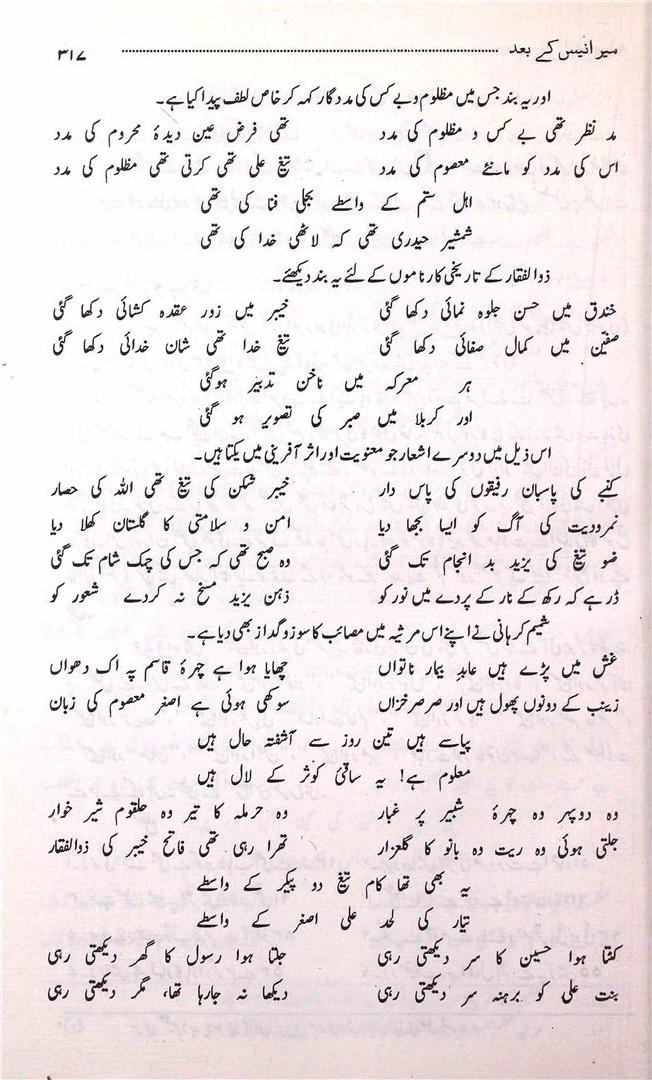 میر انیس کے بعد ........ ۳۱۷
اور یہ بند جس میں مظلوم و بے کس کی مددگار کہہ کر خاص لطف پیدا کیا ہے۔
مد نظر تھی بے کس و مظلوم کی مدد تھی فرض عین دیدۂ محروم کی مدد
اس کی مدد کو مانئے معصوم کی مدد تیغ علی تھی کرتی تھی مظلوم کی مدد
اہل ستم کے واسطے بجلی فنا کی تھی
شمشیر حیدری تھی کہ لاٹھی خدا کی تھی
ذوالفقار کے تاریخی کارناموں کے لئے یہ بند دیکھئے۔
خندق میں حسن جلوہ نمائی دکھا گئی خیبر میں زور عقدہ کشائی دکھا گئی
صفین میں کمال صفائی دکھا گئی تیغ خدا تھی شان خدائی دکھا گئی
ہر معرکہ میں ناخن تدبیر ہوگئی
اور کربلا میں صبر کی تصویر ہو گئی
اس ذیل میں دوسرے اشعار جو معنویت اور اثر آفرینی میں یکتا ہیں۔
کنبے کی پاسبان رفیقوں کی پاس دار خیبر شکن کی تیغ تھی اللہ کی حصار
نمرودیت کی آگ کو ایسا بجھا دیا امن و سلامتی کا گلستان کھلا دیا
ضو تیغ کی یزید بد انجام تک گئی وہ صبح تھی کہ جس کی چمک شام تک گئی
ڈر ہے کہ رکھ کے نار کے پردے میں نور کو ذہن یزید مسخ نہ کردے شعور کو
شمیم کرہانی نے اپنے اس مرثیہ میں مصائب کا سوز و گداز بھی دیا ہے۔
غش میں پڑے ہیں عابد بیمار ناتواں چھایا ہوا ہے چہرۂ قاسم پہ اک دھواں
زینب کے دونوں پھول ہیں اور صرصر خزاں سوکھی ہوئی ہے اصغر معصوم کی زبان
پیاسے ہیں تین روز سے آشفتہ حال ہیں
معلوم ہے! یہ ساقیٔ کوثر کے لال ہیں
وہ دوپہر وہ چہرۂ شبیر پر غبار وہ حرملہ کا تیر وہ حلقوم شیر خوار
جلتی ہوئی وہ ریت وہ بانو کا گلعزار تھرا رہی تھی فاتح خیبر کی ذوالفقار
یہ بھی تھا کام تیغ دو پیکر کے واسطے
تیار کی لحد علی اصغر کے واسطے
کٹتا ہوا حسین کا سر دیکھتی رہی جلتا ہوا رسول کا گھر دیکھتی رہی
بنت علی کو برہنہ سر دیکھتی رہی دیکھا نہ جارہا تھا، مگر دیکھتی رہی